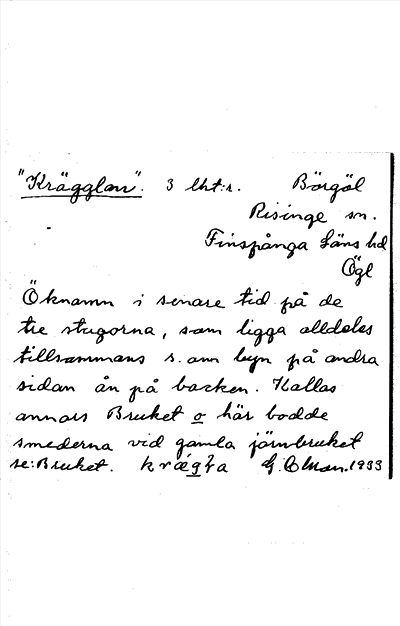 "Krägglan". 3 lht:r. Börgöl
Risinge sn.
Finspånga Läns hd
Ögl
Öknamn i senare tid på de
tre stugorna, som ligga alldeles
tillsammans s. om byn på andra
sidan ån på backen. Kallas
annars Bruket o här bodde
smederna vid gamla järnbruket
se: Bruket. G. 1933